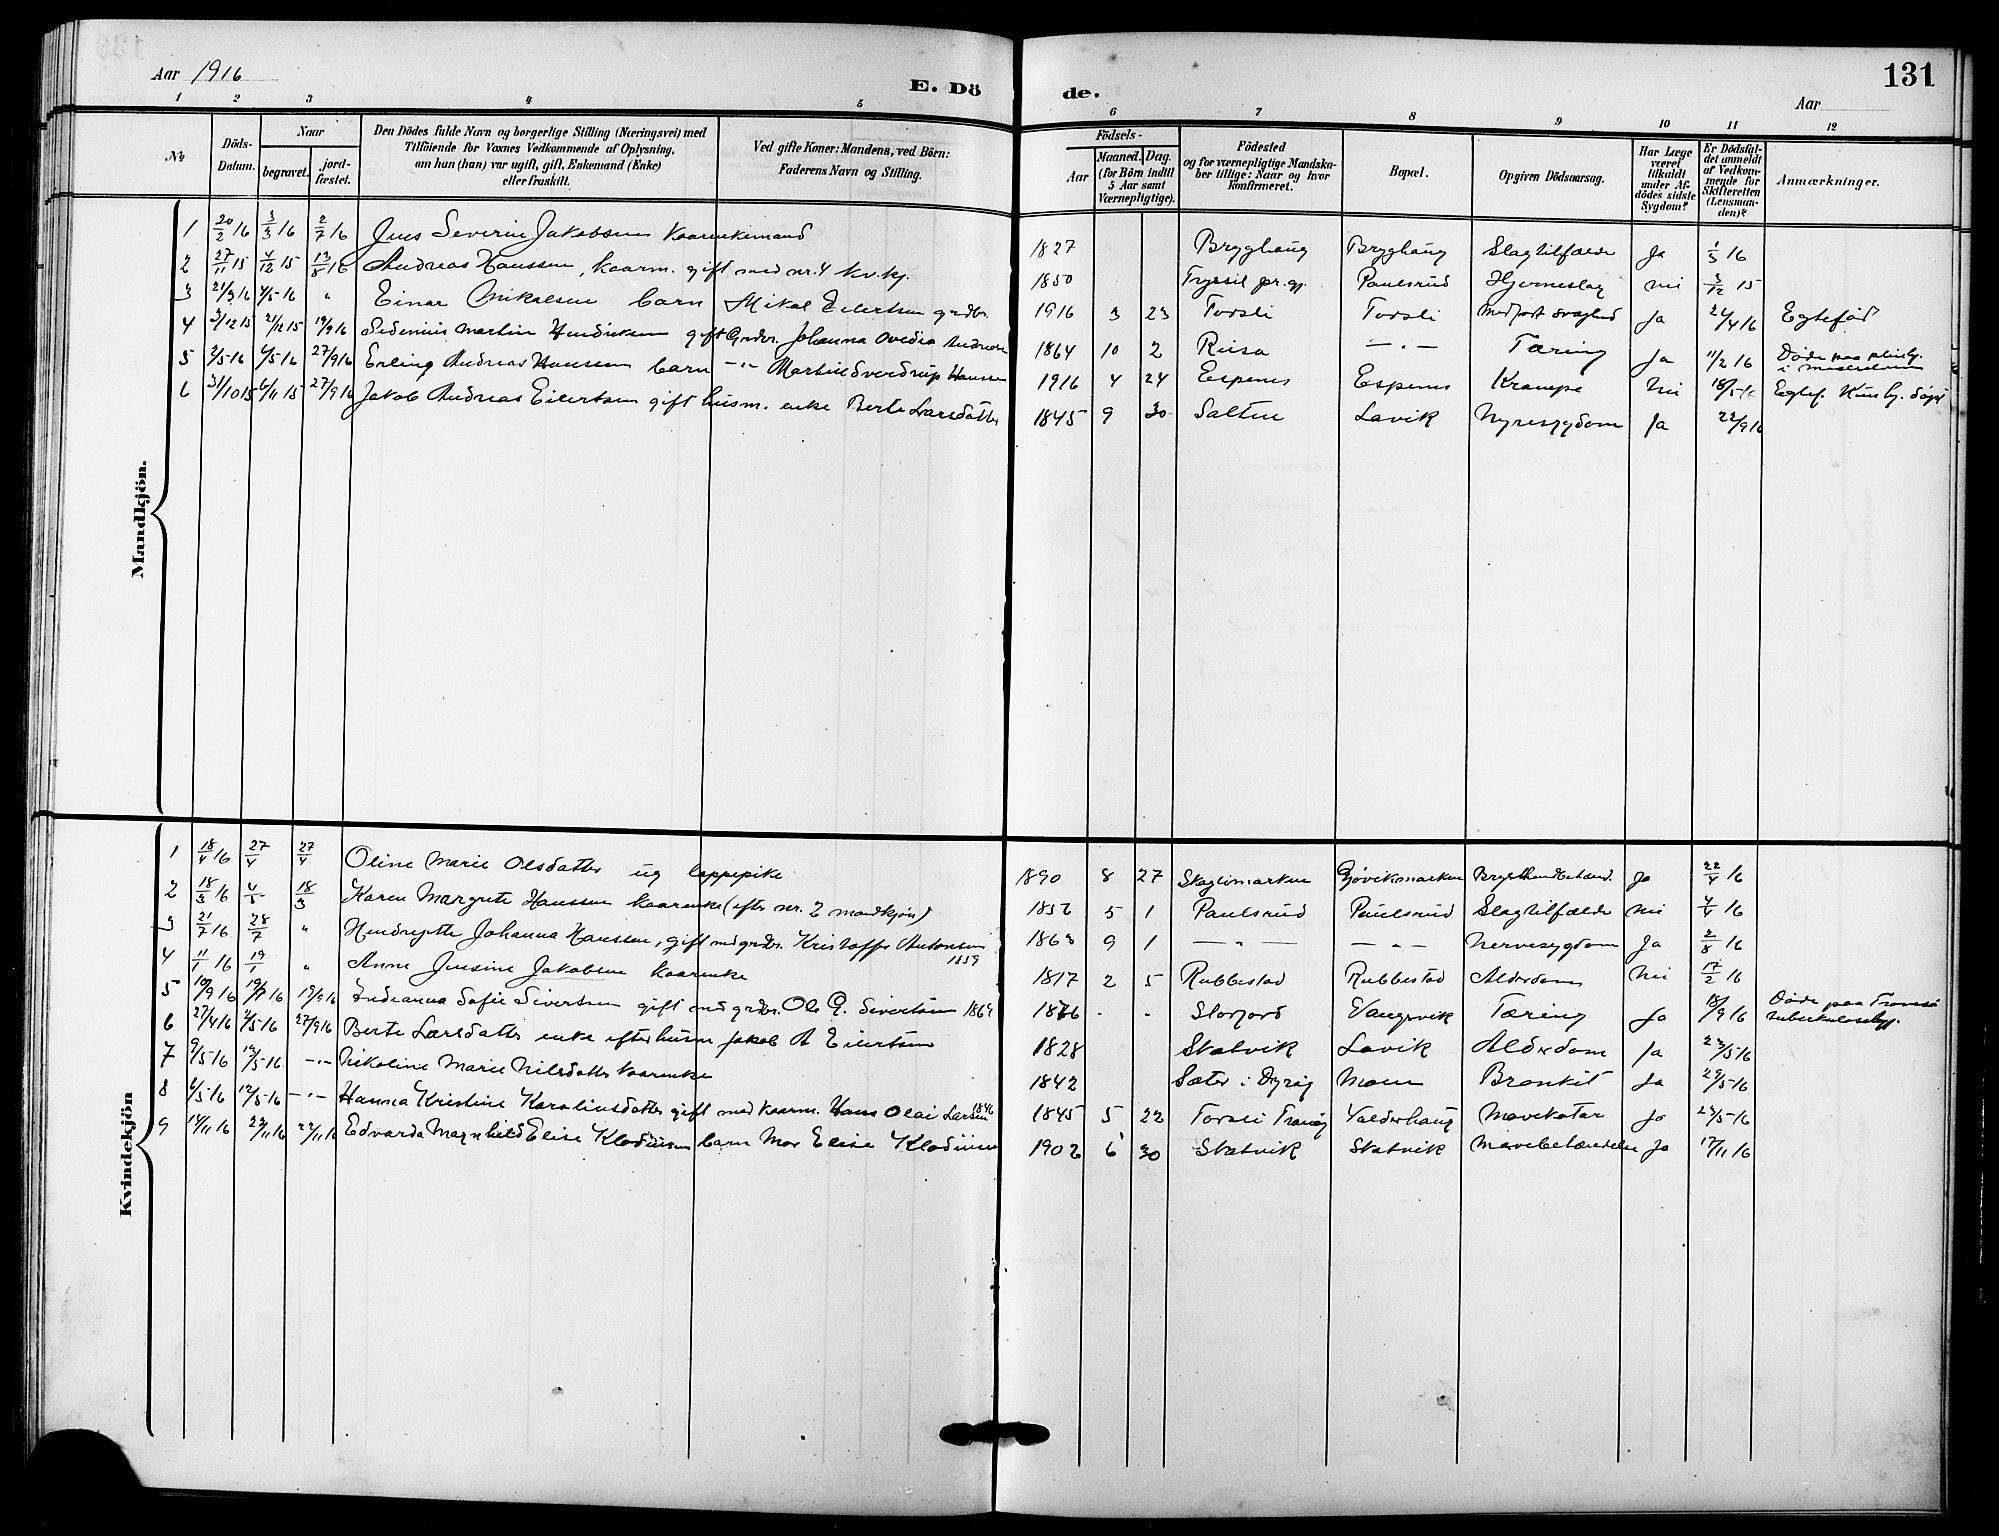 Aar 1916
E. Dö de.
131
Aar
1 2 3 4 5 6 7 8 9 10 11 12
No
Döds-Datum.
Naar
begravet.
jord-fæstet.
Den Dödes fulde Navn og borgerlige Stilling (Næringsvei) med
Tilföiende for Voxnes Vedkommende af Oplysning,
om han (hun) var ugift, gift, Enkemand (Enke)
eller fraskilt.
Ved gifte Koner: Mandens, ved Börn:
Faderens Navn og Stilling.
Födsels-
Aar
Maaned. Dag.
(for Börn indtil
5 Aar samt
Værnepligtige).
Födested
og for værnepligtige Mandska-
ber tillige: Naar og hvor
konfirmeret.
Bopæl.
Opgiven Dödsaarsag.
Har Læge
været
tilkaldt
under Af-
dödes sidste
Sygdom?
Er Dödsfal-
det anmeldt
af Vedkom-
mende for
Skifteretten
(Lensman-
den)?
Anmærkninger.
Mandkjön.
1 20/2 16 3/3 16 2/7 16 Jens Severin Jakobsen kaarenkemand 1827 Bryghaug Bryghaug Slagtilfælde Ja 1/3 16
2 27/11 15 4/12 15 13/8 16 Andreas Hanssen, kaarm. gift med nr. 4 kv.kj. 1850 Trysil pr.gj. Paulsrud Hjerneslag nei 3/12 15
3 21/3 16 4/5 16 " Einar Mikalsen barn Mikal Eilertsen grdbr. 1916 3 23 Torsli Torsli Medfødt svaghed Ja 24/4 16 Egtefød
4 3/12 15 21/12 15 19/9 16 Sedenius Martin Hendriksen gift Grdbr. Johanna Ovedia Andreasen 1864 10 2 Reisa — " — Tæring Ja 11/2 16 Døde paa pleiehj.
5 2/5 16 6/5 16 27/9 16 Erling Andreas Hanssen barn — " — Martin Sverdrup Hanssen 1916 4 24 Espenes Espenes Krampe Nei 18/5 16 Egtef.
6 31/10 15 6/11 15 27/9 16 Jakob Andreas Eilertsen gift husm. enke Berte Larsdatter 1845 9 30 Salten Lavik Nyresygdom Ja 22/9 16
Kvindekjön
1 18/4 16 27/4 27/4 Oline Marie Olsdatter ug lappepike 1890 8 27 Skoglimarken Gjøvikmarken Ja 22/4 16
2 18/3 16 4/5 18/3 Karen Margrete Hanssen kaarenke (efter nr. 2 mandkjøn) 1852 5 1 Paulsrud Paulsrud Slagtilfælde nei 4/4 16
3 21/7 16 28/7 " Hendrejette Johanna Hanssen, gift med grdbr. Kristoffer Antonsen 1859 1863 9 1 — " — — " — Nervesygdom Ja 2/8 16
4 11/1 16 19/1 " Anne Jensine Jakobsen kaarenke 1817 2 5 Rubbestad Rubbestad Alderdom nei 17/2 16
5 10/9 16 19/9 16 19/9 16 Indianna Sofie Sivertsen gift med grdbr. Ole G. Sivertsen 1864 1876 - - Storfjord Vangsvik Tæring Ja 18/9 16 Døde paa Tromsø tuberkulosehj.
6 27/4 16 4/5 16 27/9 16 Berte Larsdatter enke efter husm Jakob A Eilertsen 1828 Skatvik Lavik Alderdom Ja 23/5 16
7 9/5 16 19/5 16 — " — Nikoline Marie Nilsdatter kaarenke 1842 Sæter i Dyrøy Moen Bronkit Ja 29/5 16
8 6/5 16 19/5 16 — " — Hanna Kristine Karoliusdatter gift med kaarm. Hans Olai Larsen 1846 1845 5 22 Torsli Tranøy Valderhaug Mavekatar Ja 23/5 16
9 14/11 16 22/11 16 22/11 16 Edvarda Magnhild Elise Klodiusen barn Mor Elise Klodiusen 1902 6 30 Skatvik Skatvik Mavebetændelse Ja 17/11 16